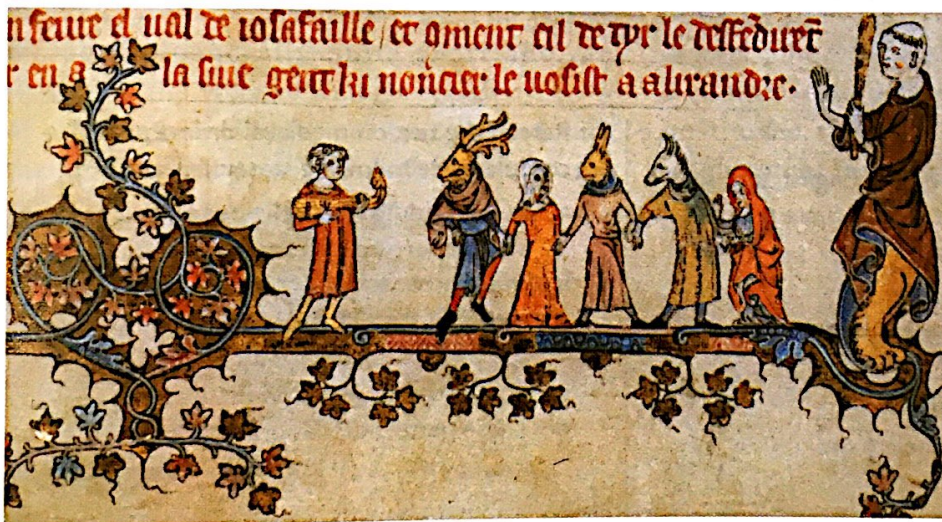 el ual de iosafaille / et qment cil de tyr le deffēdirēt
r en a la siue gent ki noncier le uosist a alixandre.